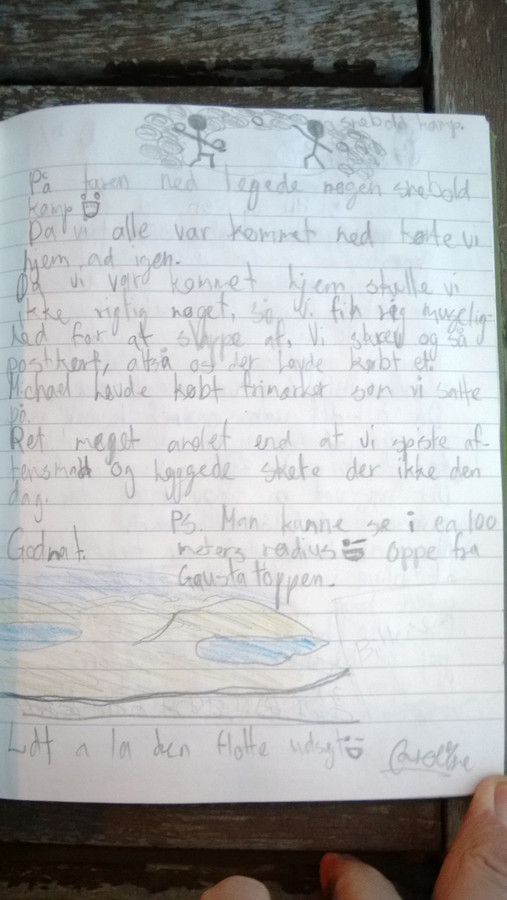 snebold kamp.
På turen ned legede nogen snebold
kamp
Da vi alle var kommet ned kørte vi
hjem ad igen.
Da vi var kommet hjem skulle vi
ikke rigtig noget, så vi fik rig mulig-
hed for at slappe af. Vi skrev også
postkort, altså os der havde købt et.
Michael havde købt frimærker som vi satte
på.
Ret meget andet end at vi spiste af-
tensmad og hyggede skete der ikke den
dag.
Godnat.
Ps. Man kunne se i ca 100
meters radius oppe fra
Gaustatoppen.
Lidt a la den flotte udsigt
Caroline